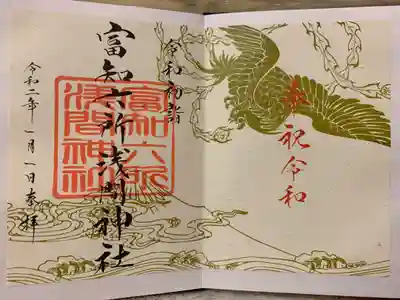 奉祝令和
令和初詣
富知六所浅間神社
令和二年一月一日奉拝
富知六所
浅間神社